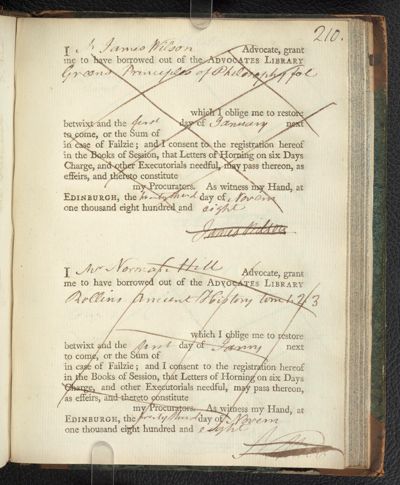 210.
I Mr James Wilson Advocate, grant
me to have borrowed out of the ADVOCATES LIBRARY
Principles of Philosophy fol
which I oblige me to restore
betwixt and the first day of January next
to come, or the Sum of
in case of Failzie; and I consent to the registration hereof
in the Books of Session, that Letters of Horning on six Days
Charge, and other Executorials needful, may pass thereon, as
effeirs, and thereto constitute
my Procurators. As witness my Hand, at
EDINBURGH, the twenty third day of Novem
one thousand eight hundred and eight
James Wilson
I Mr Norman Hill Advocate, grant
me to have borrowed out of the ADVOCATES LIBRARY
Rollins Ancient History 2 3
which I oblige me to restore
betwixt and the first day of Janry next
to come, or the Sum of
in case of Failzie; and I consent to the registration hereof
in the Books of Session, that Letters of Horning on six Days
Charge, and other Executorials needful, may pass thereon,
as effeirs, and thereto constitute
my Procurators. As witness my Hand, at
EDINBURGH, the twenty third day of Novem
one thousand eight hundred and eight